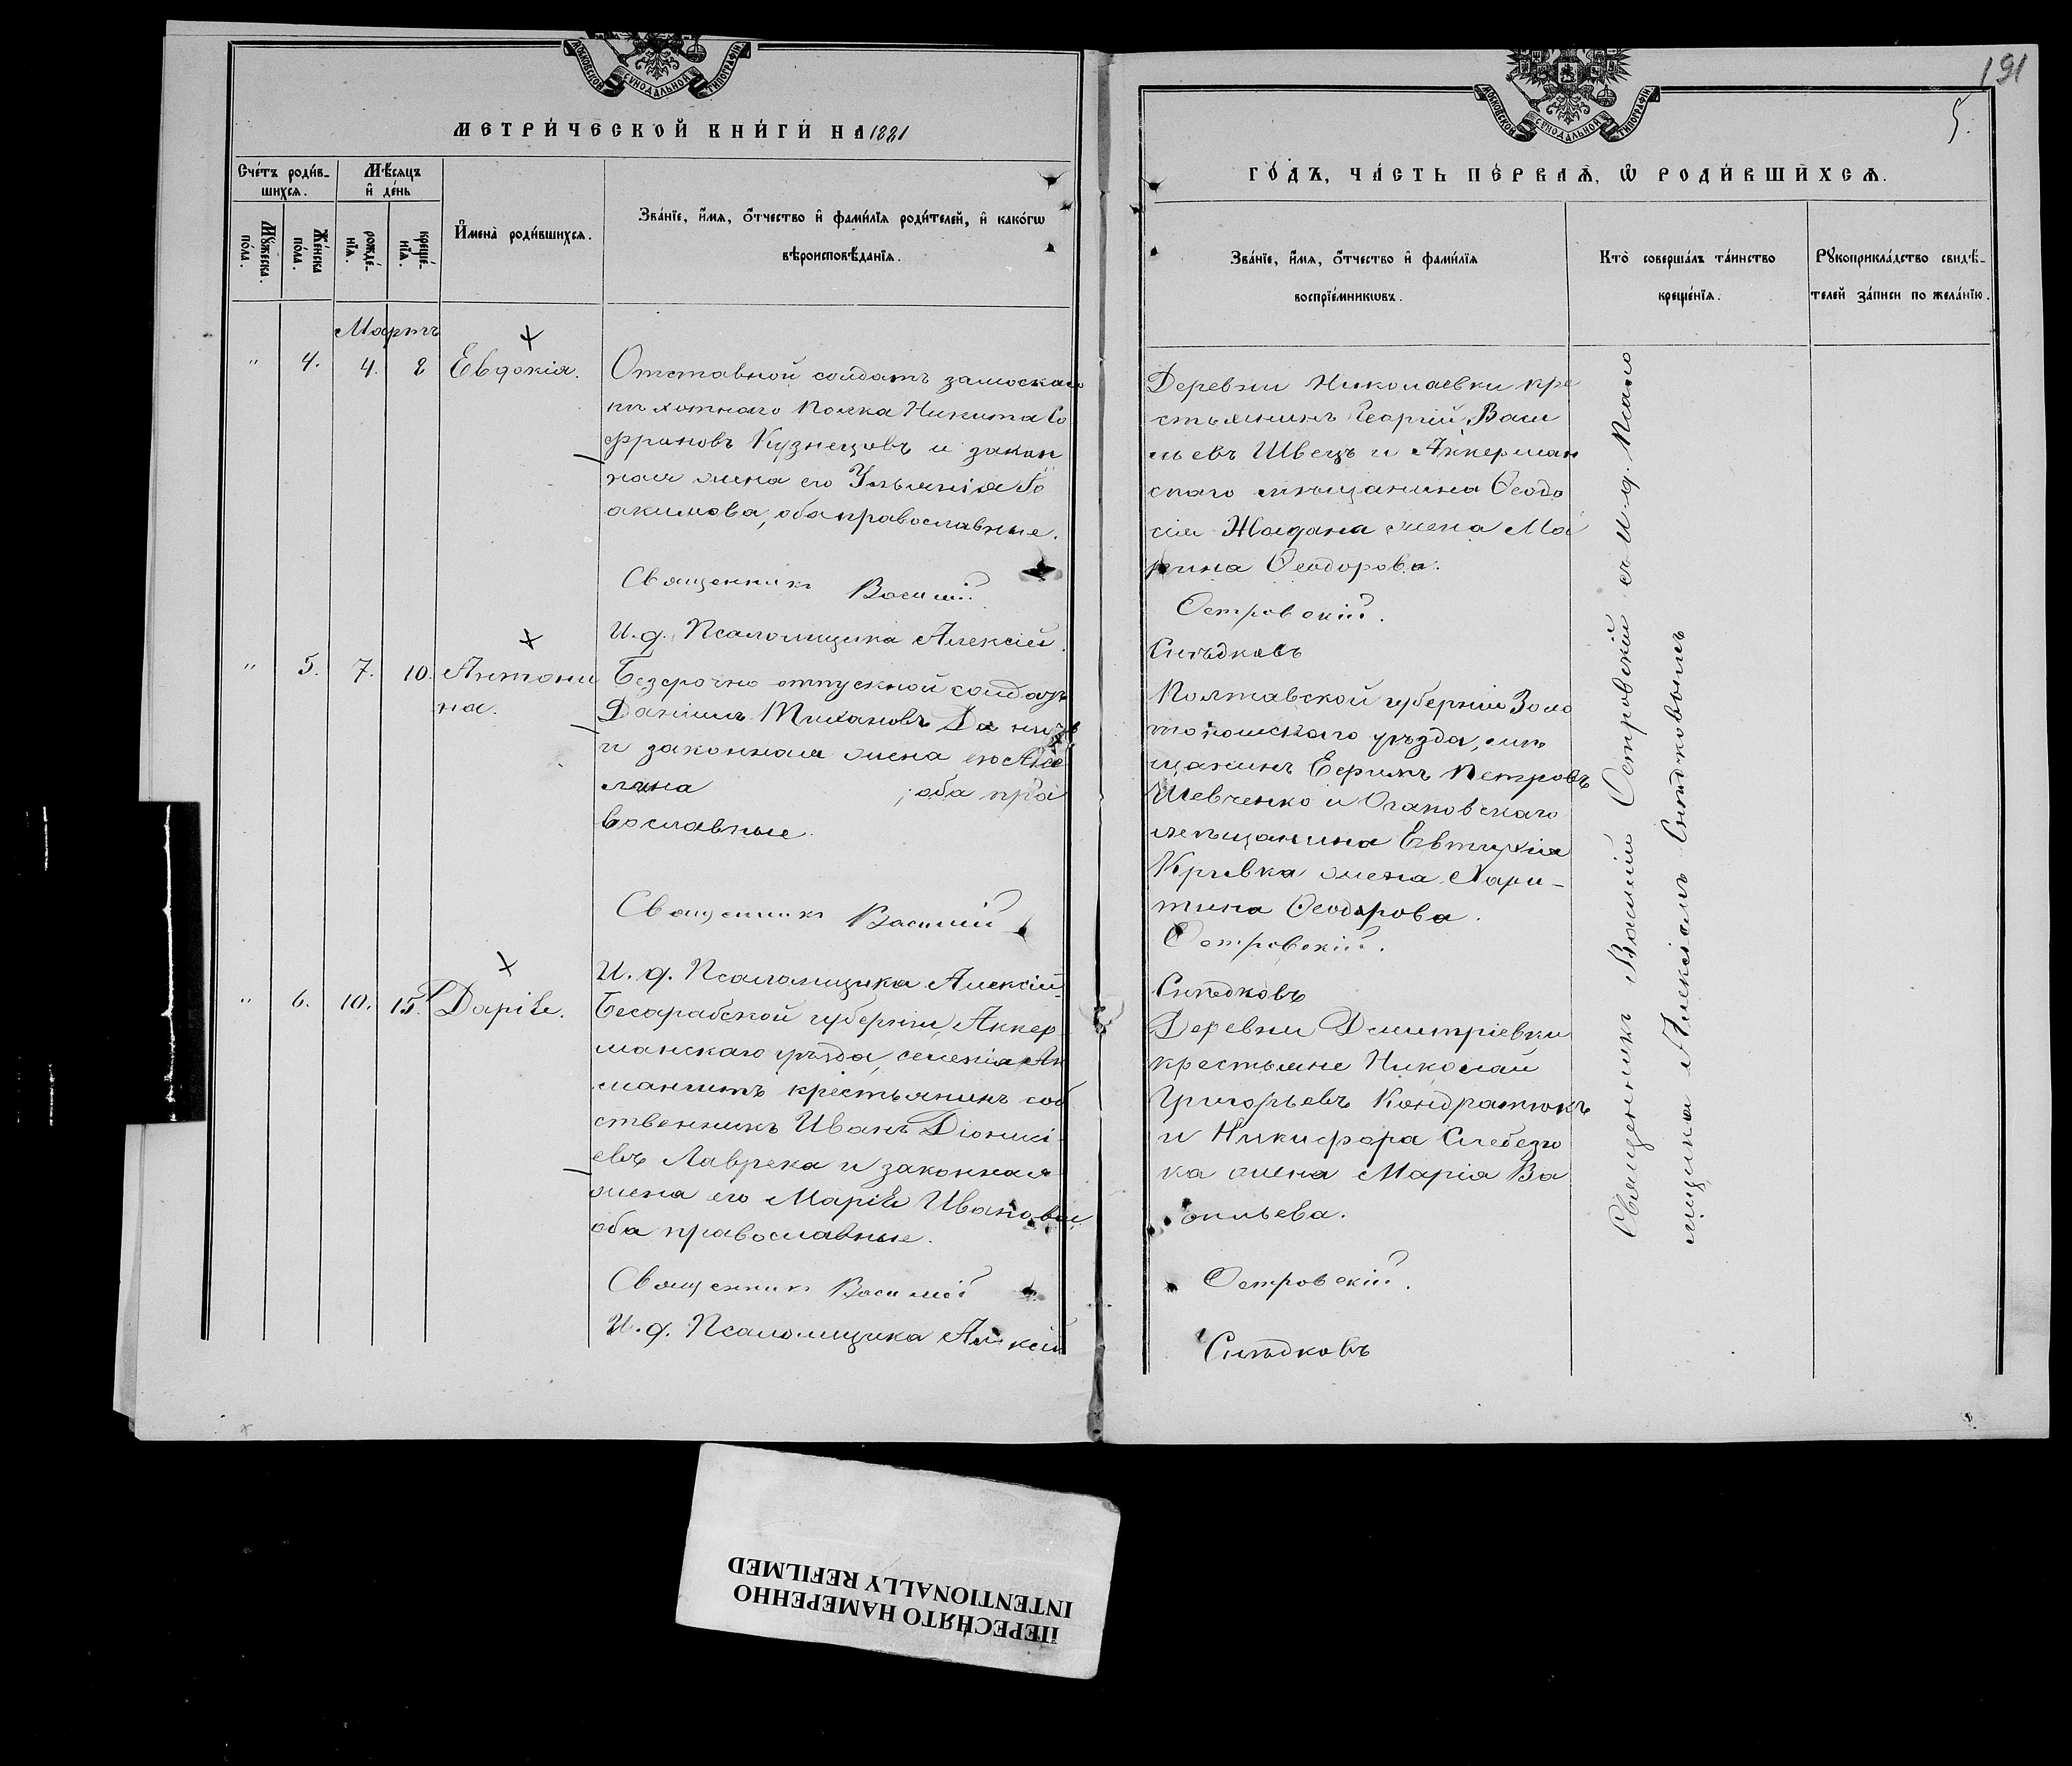 МОСКОВСКОЙ СѴНОДАЛЬНОЙ ТИПОГРАФІИ
МЕТРИ́ЧЕСКОЙ КНИ́ГИ НА 1881
Сче́тъ роди́в-
шихся.
Мѣ́сяцъ
и҆ де́нь
Мꙋ́жеска
по́ла.
Же́нска
по́ла.
рожде́-
нїѧ.
креще́-
нїѧ.
И҆мена̀ роди́вшихсѧ.
Зва́нїе, и҆́мѧ, ѻ҆́тчество и҆ фами́лїѧ роди́телей, и҆ како́гѡ
вѣроисповѣ́данїѧ.
Мартъ
" 4. 4. 8 Евдокія.
Отставной солдатъ замоскаго
пѣхотнаго полка Никита Со
фроновъ Кузнецовъ и закон
ная жена его Ульянія Іо
акимова, оба православные.
Священникъ Василій
И. д. Псаломщика Алексій
" 5. 7. 10. Антони
на.
Безсрочно отпускной солдатъ
Даніилъ
и законная жена его
оба пра
вославные
Священникъ Василій
И. д. Псаломщика Алексій
" 6. 10. 15. Дарія.
Бесарабской губерніи, Аккер
манскаго уѣзда, селенія Ак
мангитъ крестьянинъ соб
ственникъ Иванъ Діонисі
евъ Лаврека и законная
жена его Марія Иванова
оба православные.
Священникъ Василій
И. д. Псаломщика Алексій
191
5.
МОСКОВСКОЙ СѴНОДАЛЬНОЙ ТИПОГРАФІИ
ГО́ДЪ, ЧА́СТЬ ПЕ́РВАѦ, Ѡ҆ РОДИ́ВШИХСѦ.
Зва́нїе, и҆́мѧ, ѻ҆́тчество и҆ фами́лїѧ
воспрїе́мникѡвъ.
Кто̀ соверша́лъ та́инство
креще́нїѧ.
Рꙋкоприкла́дство свидѣ́-
телей за́писи по жела́нїю.
Деревни Николаевки кре
стьянинъ Георгій Васи
льевъ Швецъ и Аккерман
скаго мѣщанина Ѳеодо
сія Жадана жена Ма
рина Ѳеодорова.
Островскій.
Слѣдковъ
Полтавской губерніи Золо
тоношскаго уѣзда, мѣ
щанинъ Ефимъ Петровъ
Шевченко и Очаковскаго
мѣщанина Евтихія
Кривка жена Хари-
тина Ѳеодорова.
Островскій.
Слѣдковъ
Деревни Дмитріевки
крестьяне Николай
Григорьевъ Кондратюкъ
и Никифора Слебезю
ка жена Марія Ва
сильева.
Островскій.
Слѣдковъ
Священникъ Василій Островскій съ И. д. Псало
мщика Алексіемъ Слѣдковымъ
ПЕРЕСНЯТО НАМЕРЕННО
INTENTIONALLY REFILMED